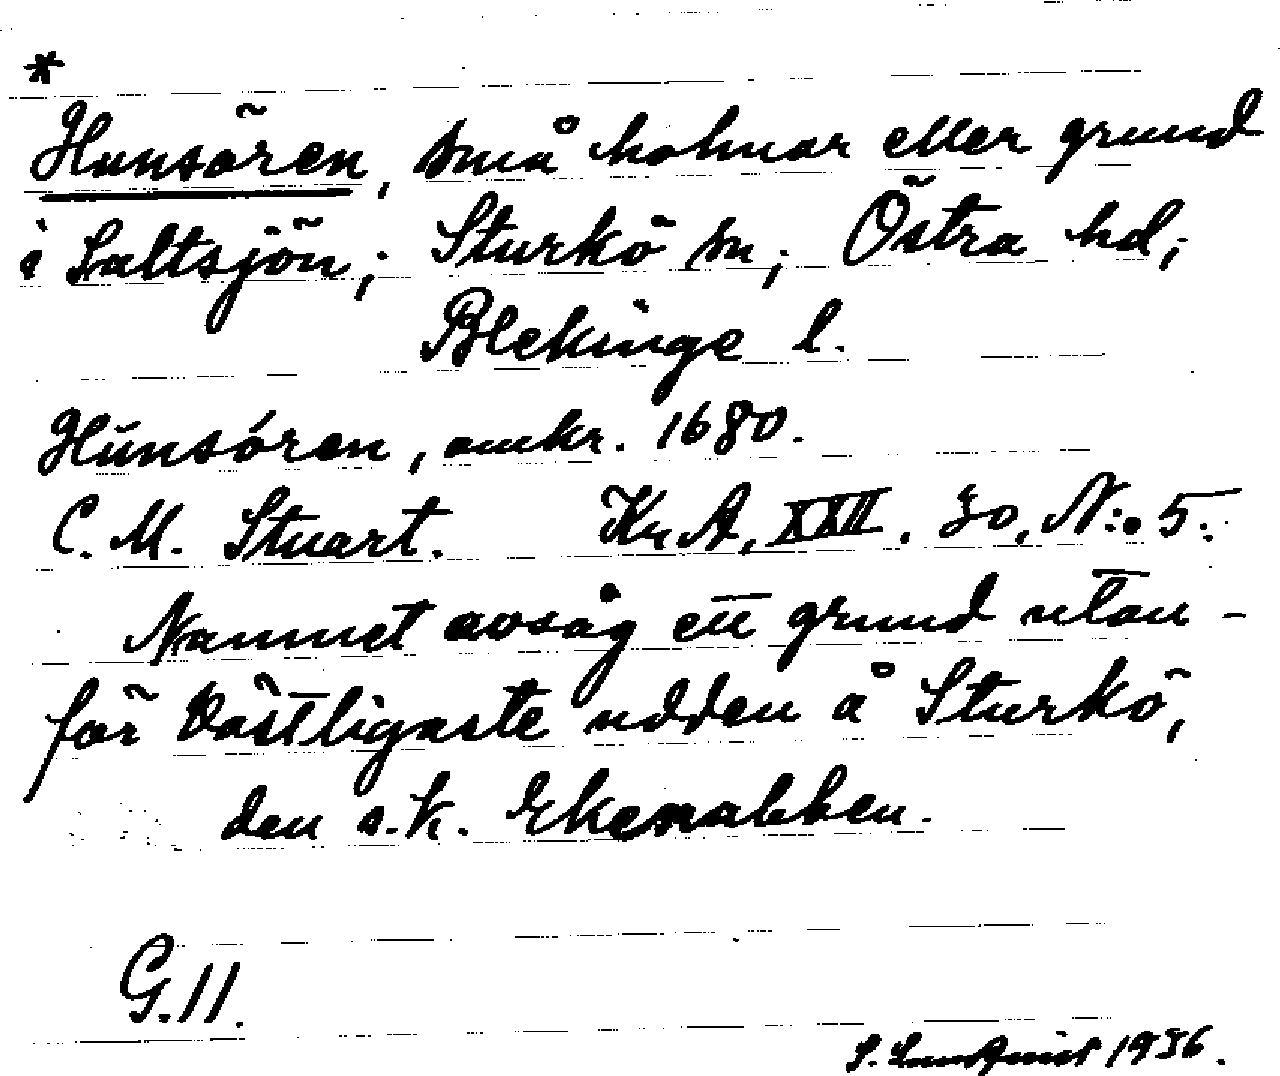 *
Hunsören, små holmar eller grund
i Saltsjön; Sturkö sn; Östra hd;
Blekinge l.
Hŭnsóren, omkr. 1680.
C. M. Stuart. Kr. A, XXII, 30, N:o 5.
Namnet avsåg ett grund utan-
för västligaste udden å Sturkö,
den s.k. Ekenabben.
G. 11.
S. 1936.